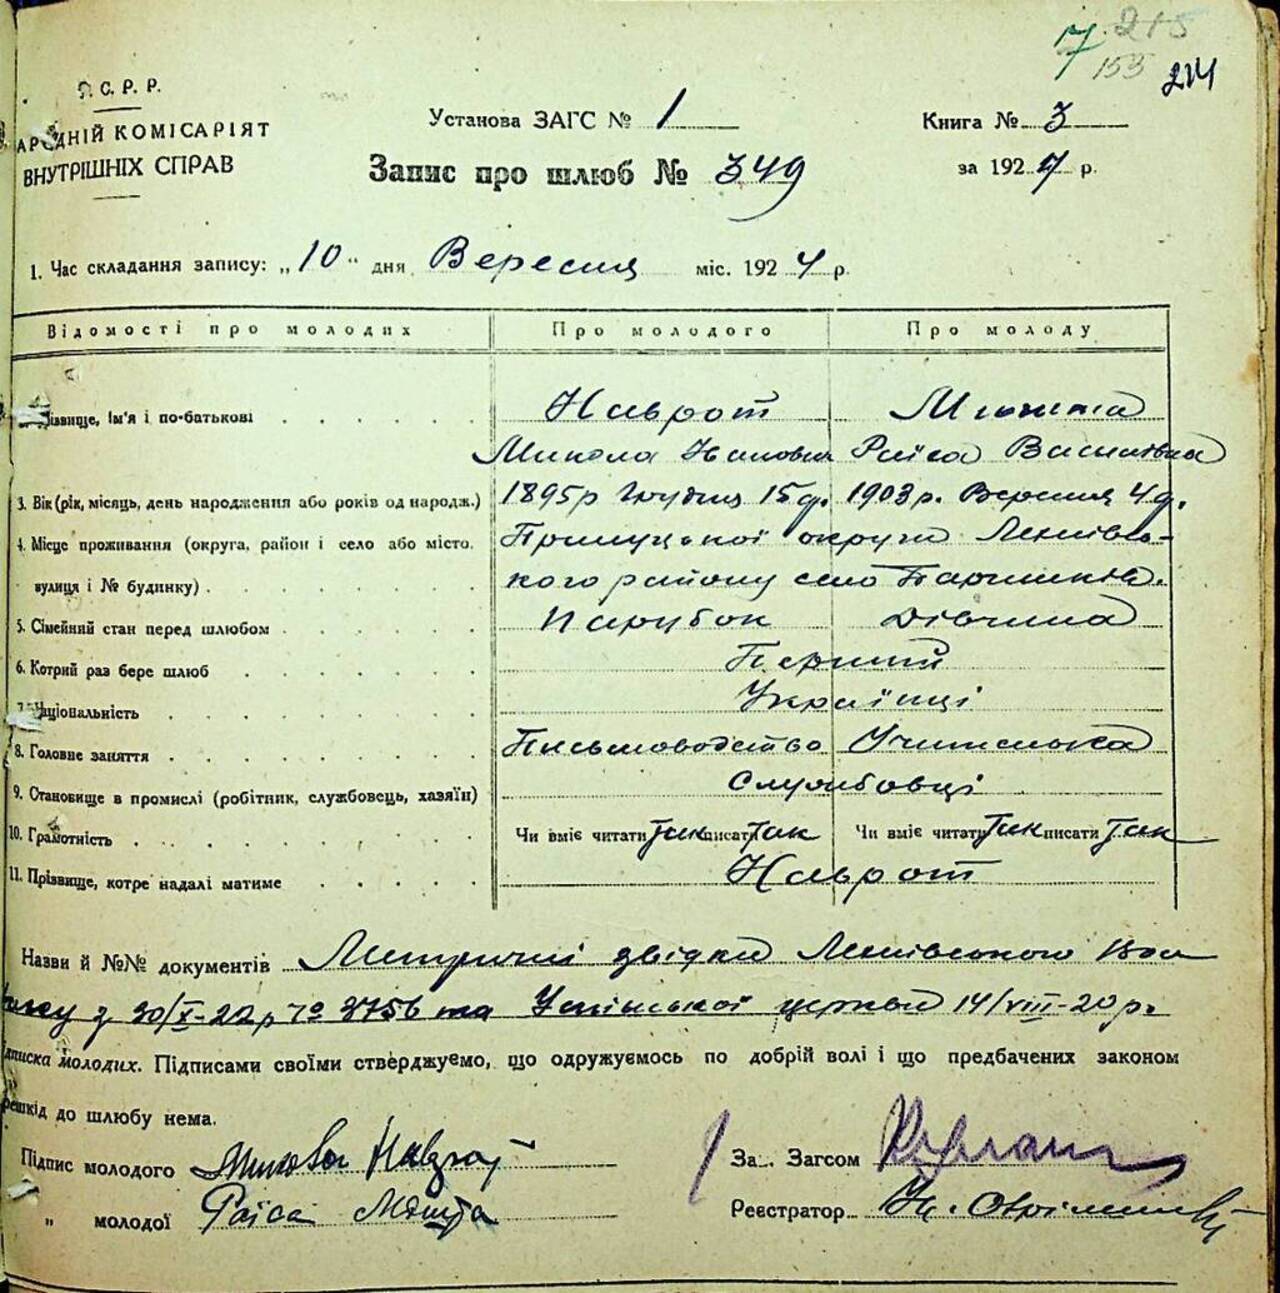 7 215
153 214
С. Р. Р.
НАРОДНІЙ КОМІСАРІЯТ
ВНУТРІШНІХ СПРАВ
Установа ЗАГС № 1
Книга № 3
Запис про шлюб № 349
за 1924 р.
1. Час складання запису: „10“ дня Вересня міс. 1924 р.
Відомості про молодих Про молодого Про молоду
Прізвище, ім'я і по-батькові Наврот
Микола Іванович Раїса Василівна
3. Вік (рік, місяць, день народження або років од народж.) 1895 р Грудня 15 д. 1903 р. Вересня 4 д.
4. Місце проживання (округа, район і село або місто, Прилуцької округи
вулиця і № будинку) кого району село
5. Сімейний стан перед шлюбом Парубок Дівчина
6. Котрий раз бере шлюб Перший
7. Національність Українці
8. Головне заняття Письмоводство Учителька
9. Становище в промислі (робітник, службовець, хазяїн) Службовці
10. Грамотність Чи вміє читати так писати так Чи вміє читати так писати так
11. Прізвище, котре надалі матиме Наврот
Назви й №№ документів Метричні звідки
з 30/X-22 р № 3756 та церкви 14/VIII-20 р.
дписка молодих. Підписами своїми стверджуємо, що одружуємось по добрій волі і що предбачених законом
решкід до шлюбу нема.
Підпис молодого Микола Наврот
За. Загсом
„ молодої Раїса
Реєстратор